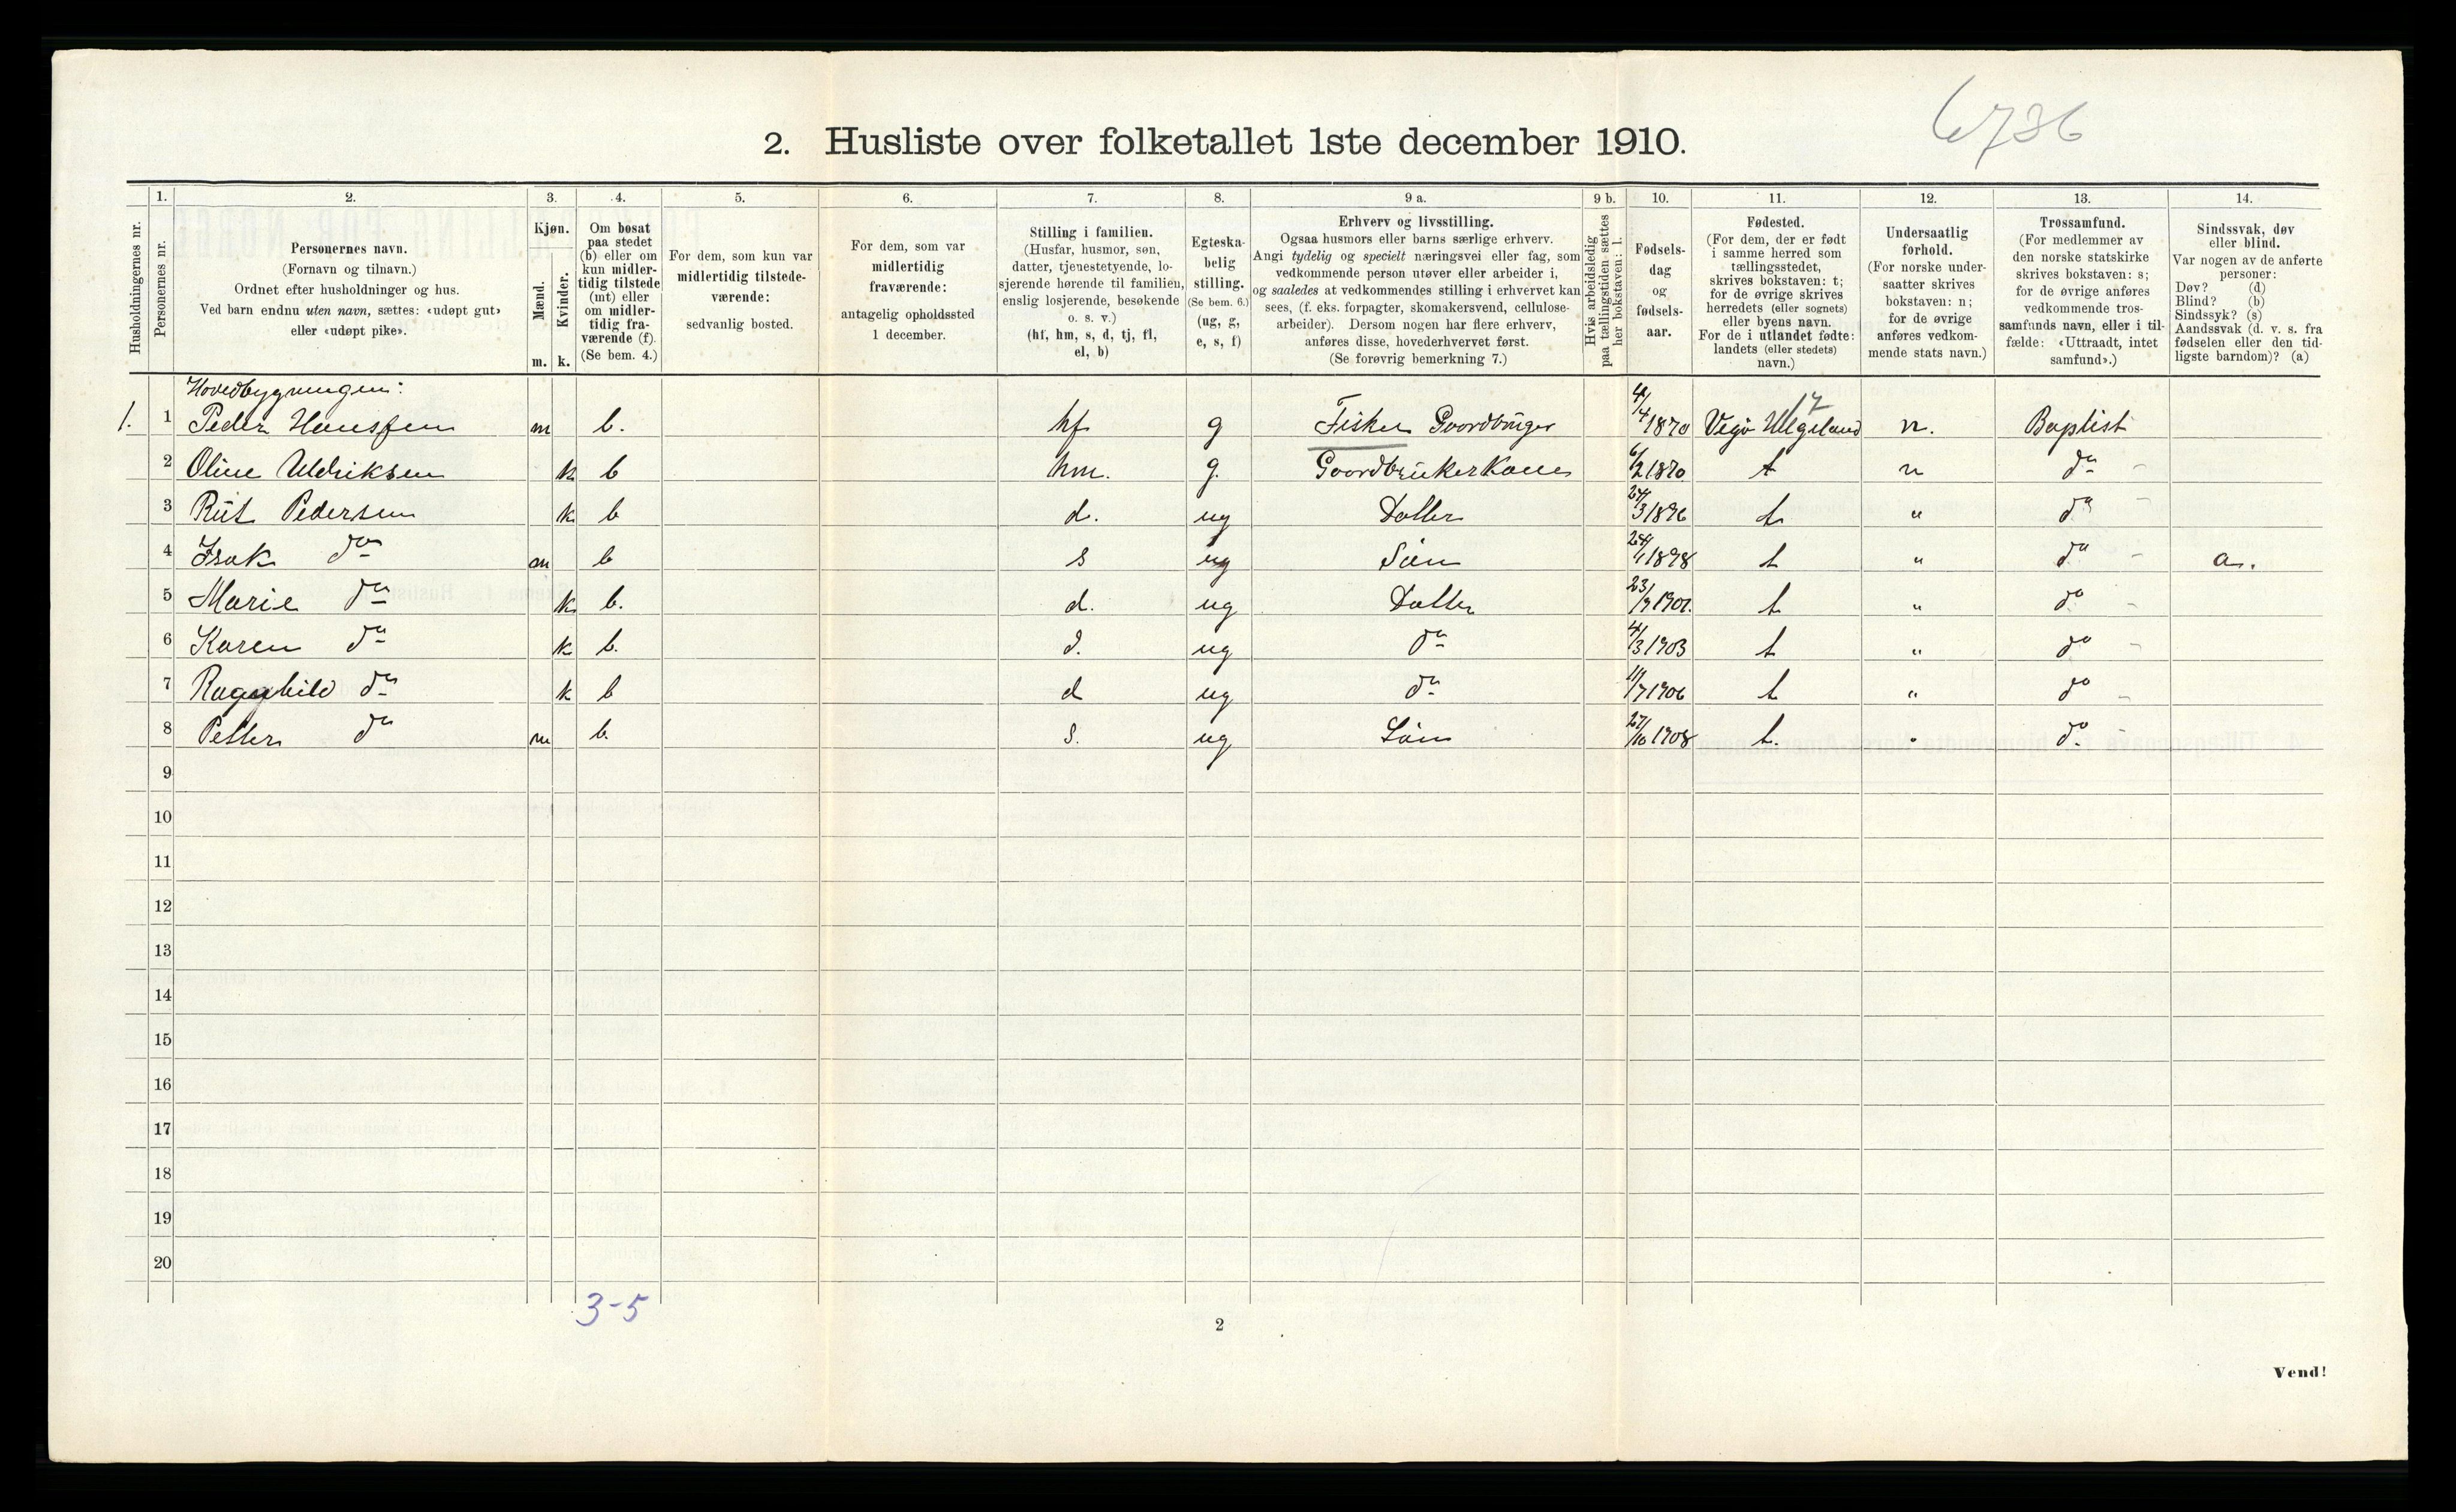 6736
2. Husliste over folketallet 1ste december 1910.
1. 2. 3. 4. 5. 6. 7. 8. 9 a. 9 b. 10. 11. 12. 13. 14.
Husholdningernes nr.
Personernes nr.
Personernes navn.
(Fornavn og tilnavn.)
Ordnet efter husholdninger og hus.
Ved barn endnu uten navn, sættes: «udøpt gut»
eller «udøpt pike».
Kjøn.
Mænd.
Kvinder.
m. k.
Om bosat
paa stedet
(b) eller om
kun midler-
tidig tilstede
(mt) eller
om midler-
tidig fra-
værende (f).
(Se bem. 4.)
For dem, som kun var
midlertidig tilstede-
værende:
sedvanlig bosted.
For dem, som var
midlertidig
fraværende:
antagelig opholdssted
1 december.
Stilling i familien.
(Husfar, husmor, søn,
datter, tjenestetyende, lo-
sjerende hørende til familien,
enslig losjerende, besøkende
o. s. v.)
(hf, hm, s, d, tj, fl,
el, b)
Egteska-
belig
stilling.
(Se bem. 6.)
(ug, g,
e, s, f)
Erhverv og livsstilling.
Ogsaa husmors eller barns særlige erhverv.
Angi tydelig og specielt næringsvei eller fag, som
vedkommende person utøver eller arbeider i,
og saaledes at vedkommendes stilling i erhvervet kan
sees, (f. eks. forpagter, skomakersvend, cellulose-
arbeider). Dersom nogen har flere erhverv,
anføres disse, hovederhvervet først.
(Se forøvrig bemerkning 7.)
Hvis arbeidsledig
paa tællingstiden sættes
her bokstaven: l.
Fødsels-
dag
og
fødsels-
aar.
Fødested.
(For dem, der er født
i samme herred som
tællingsstedet,
skrives bokstaven: t;
for de øvrige skrives
herredets (eller sognets)
eller byens navn.
For de i utlandet fødte:
landets (eller stedets)
navn.)
Undersaatlig
forhold.
(For norske under-
saatter skrives
bokstaven: n;
for de øvrige
anføres vedkom-
mende stats navn.)
Trossamfund.
(For medlemmer av
den norske statskirke
skrives bokstaven: s;
for de øvrige anføres
vedkommende tros-
samfunds navn, eller i til-
fælde: «Uttraadt, intet
samfund».)
Sindssvak, døv
eller blind.
Var nogen av de anførte
personer:
Døv? (d)
Blind? (b)
Sindssyk? (s)
Aandssvak (d. v. s. fra
fødselen eller den tid-
ligste barndom)? (a)
Hovedbygningen:
1. 1 Peder Hanssen m b. hf g Fisker Gaardbruger 4/4 1870 Vegø Helgeland 17 n. Baptist
2 Oline Uldriksen k b hm. g. Gaardbruker Kone 6/2 1870 t n do -
3 Rut Pedersen k b d. ug Datter 24/3 1896 t " do -
4 Isak do m b s ug Søn 24/1 1898 t " do - a.
5 Marie do k b. d. ug Datter 23/9 1901. t " do -
6 Karen do k b. d. ug do 4/3 1903 t " do -
7 Ragnhild do k b d ug do 11/7 1906 t " do -
8 Petter do m b. s. ug Søn 27/10 1908 t. " do. -
9
10
11
12
13
14
15
16
17
18
19
20
3-5
2
Vend!